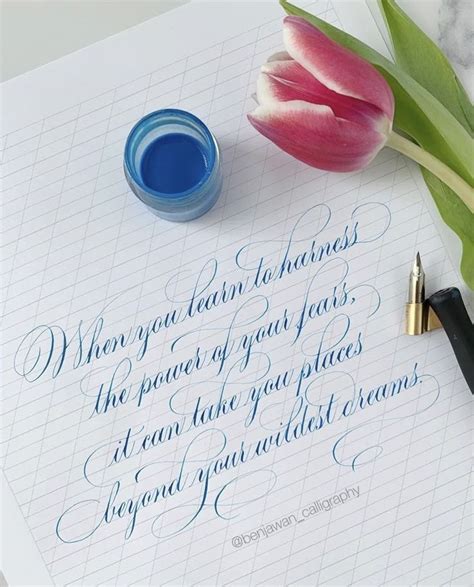 When you learn to harness
the power of your fears,
it can take you places
beyond your wildest dreams.
@benjawan_calligraphy